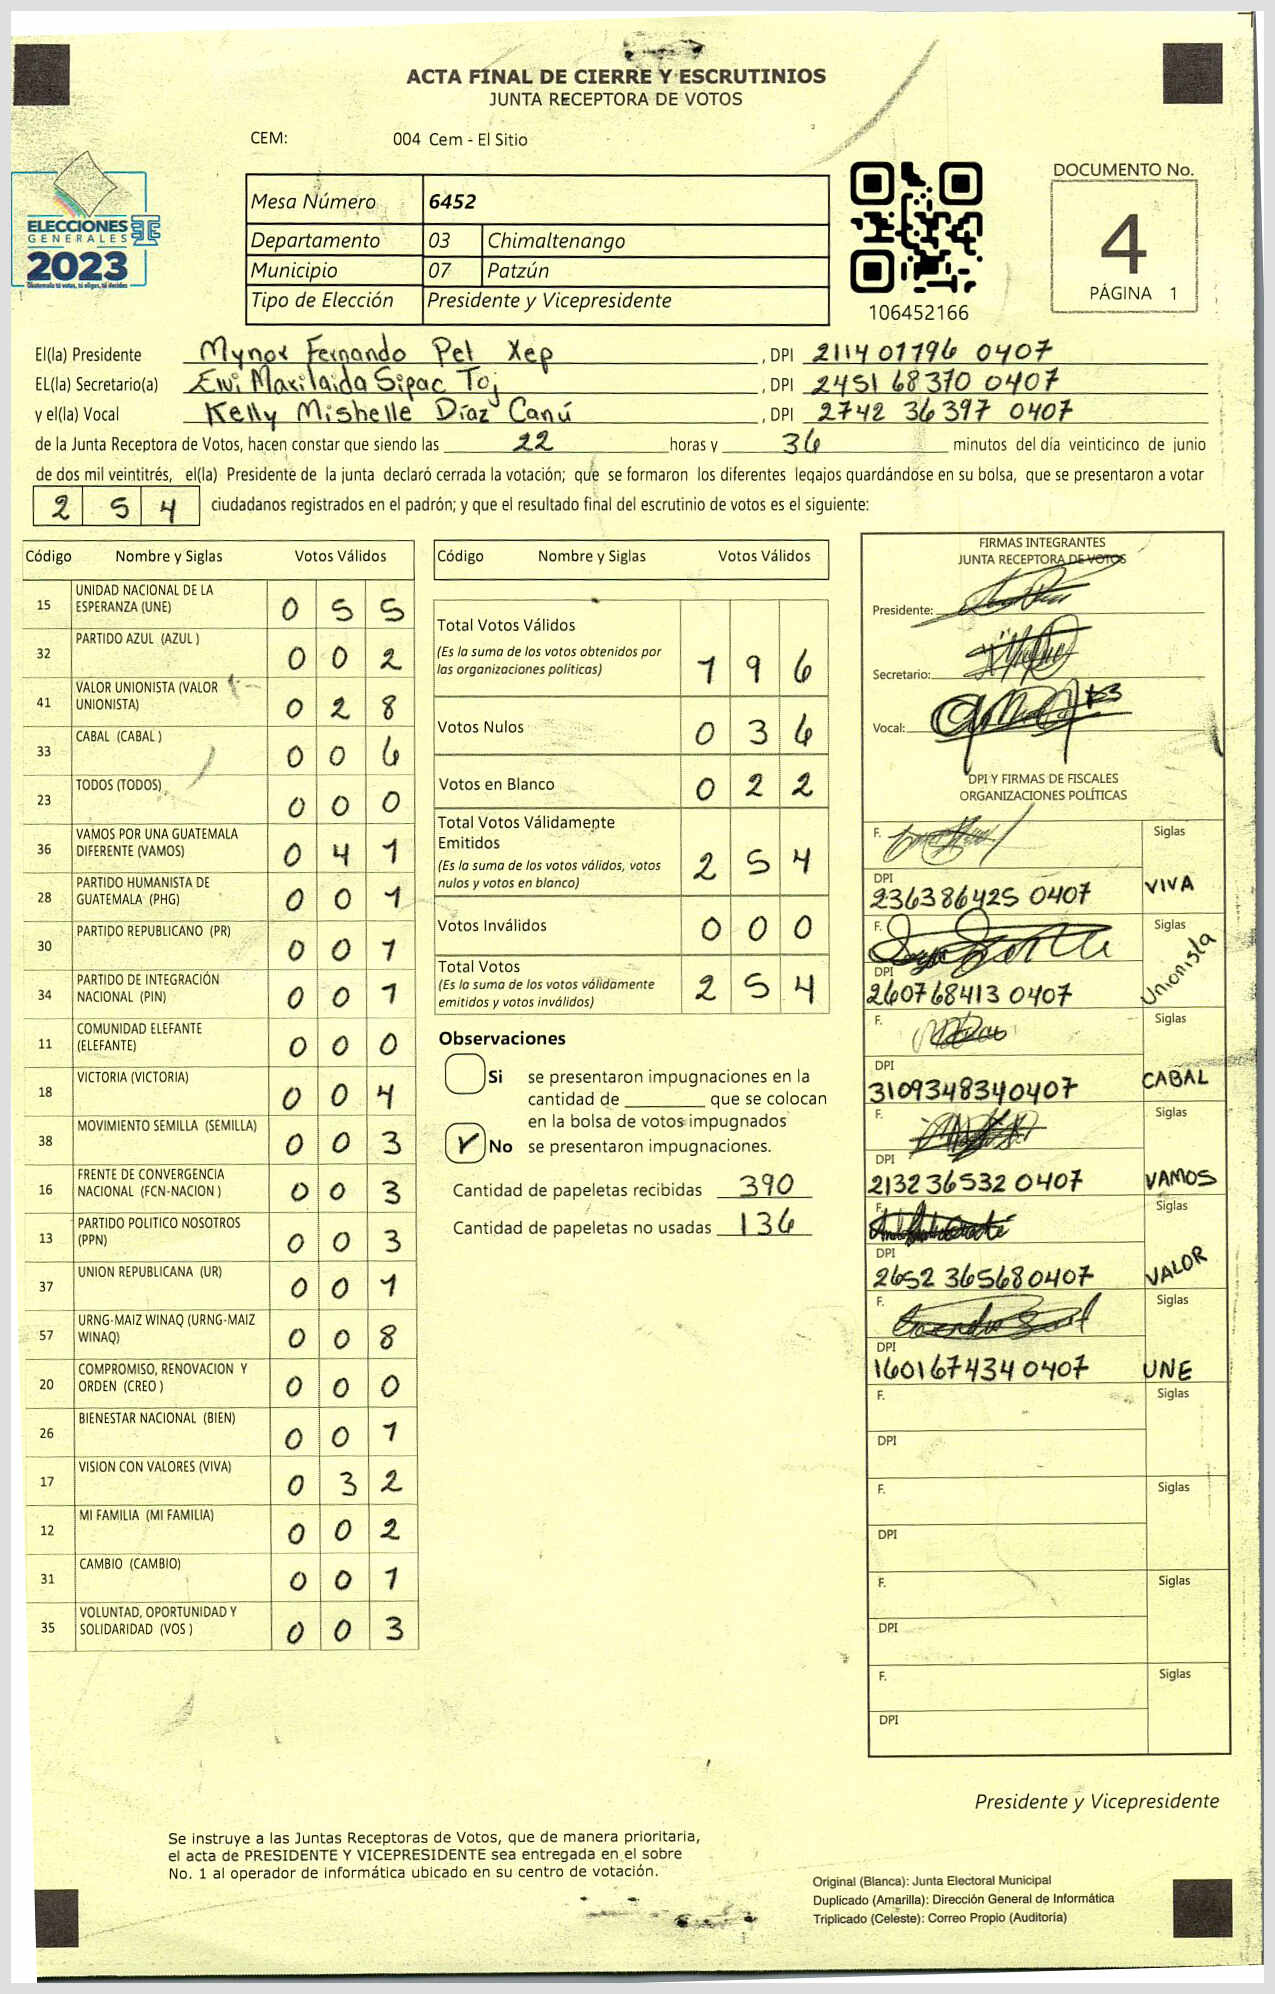 ACTA FINAL DE CIERRE Y ESCRUTINIOS
JUNTA RECEPTORA DE VOTOS
CEM: 004 Cem - El Sitio
ELECCIONES
GENERALES
2023
Guatemala tú votas, tú eliges, tú decides
Mesa Número 6452
Departamento 03 Chimaltenango
Municipio 07 Patzún
Tipo de Elección Presidente y Vicepresidente
106452166
DOCUMENTO No.
4
PÁGINA 1
El(la) Presidente Mynor Fernando Pel Xep, DPI 2114 01796 0407
EL(la) Secretario(a) Maxilaida Sipac Toj, DPI 2451 68370 0407
y el(la) Vocal Kelly Mishelle Díaz Canú, DPI 2742 36397 0407
de la Junta Receptora de Votos, hacen constar que siendo las 22 horas y 36 minutos del día veinticinco de junio
de dos mil veintitrés, el(la) Presidente de la junta declaró cerrada la votación; que se formaron los diferentes legajos guardándose en su bolsa, que se presentaron a votar
254 ciudadanos registrados en el padrón; y que el resultado final del escrutinio de votos es el siguiente:
Código Nombre y Siglas Votos Válidos
15 UNIDAD NACIONAL DE LA ESPERANZA (UNE) 0 5 5
32 PARTIDO AZUL (AZUL ) 0 0 2
41 VALOR UNIONISTA (VALOR UNIONISTA) 0 2 8
33 CABAL (CABAL ) 0 0 6
23 TODOS (TODOS) 0 0 0
36 VAMOS POR UNA GUATEMALA DIFERENTE (VAMOS) 0 4 1
28 PARTIDO HUMANISTA DE GUATEMALA (PHG) 0 0 1
30 PARTIDO REPUBLICANO (PR) 0 0 1
34 PARTIDO DE INTEGRACIÓN NACIONAL (PIN) 0 0 1
11 COMUNIDAD ELEFANTE (ELEFANTE) 0 0 0
18 VICTORIA (VICTORIA) 0 0 4
38 MOVIMIENTO SEMILLA (SEMILLA) 0 0 3
16 FRENTE DE CONVERGENCIA NACIONAL (FCN-NACION ) 0 0 3
13 PARTIDO POLITICO NOSOTROS (PPN) 0 0 3
37 UNION REPUBLICANA (UR) 0 0 1
57 URNG-MAIZ WINAQ (URNG-MAIZ WINAQ) 0 0 8
20 COMPROMISO, RENOVACION Y ORDEN (CREO ) 0 0 0
26 BIENESTAR NACIONAL (BIEN) 0 0 1
17 VISION CON VALORES (VIVA) 0 3 2
12 MI FAMILIA (MI FAMILIA) 0 0 2
31 CAMBIO (CAMBIO) 0 0 1
35 VOLUNTAD, OPORTUNIDAD Y SOLIDARIDAD (VOS ) 0 0 3
Código Nombre y Siglas Votos Válidos
Total Votos Válidos
(Es la suma de los votos obtenidos por
las organizaciones políticas) 1 9 6
Votos Nulos 0 3 6
Votos en Blanco 0 2 2
Total Votos Válidamente
Emitidos
(Es la suma de los votos válidos, votos
nulos y votos en blanco) 2 5 4
Votos Inválidos 0 0 0
Total Votos
(Es la suma de los votos válidamente
emitidos y votos inválidos) 2 5 4
Observaciones
Si se presentaron impugnaciones en la
cantidad de ________ que se colocan
en la bolsa de votos impugnados
No se presentaron impugnaciones.
Cantidad de papeletas recibidas 390
Cantidad de papeletas no usadas 136
FIRMAS INTEGRANTES
JUNTA RECEPTORA DE VOTOS
Presidente:
Secretario:
Vocal:
DPI Y FIRMAS DE FISCALES
ORGANIZACIONES POLÍTICAS
F. Siglas
DPI
236386425 0407 VIVA
F. Siglas
DPI
260768413 0407 Unionista
F. Siglas
DPI
3109348340407 CABAL
F. Siglas
DPI
213236532 0407 VAMOS
F. Siglas
DPI
2652 365680407 VALOR
F. Siglas
DPI
160167434 0407 UNE
F. Siglas
DPI
F. Siglas
DPI
F. Siglas
DPI
F. Siglas
DPI
Presidente y Vicepresidente
Se instruye a las Juntas Receptoras de Votos, que de manera prioritaria,
el acta de PRESIDENTE Y VICEPRESIDENTE sea entregada en el sobre
No. 1 al operador de informática ubicado en su centro de votación.
Original (Blanca): Junta Electoral Municipal
Duplicado (Amarilla): Dirección General de Informática
Triplicado (Celeste): Correo Propio (Auditoría)